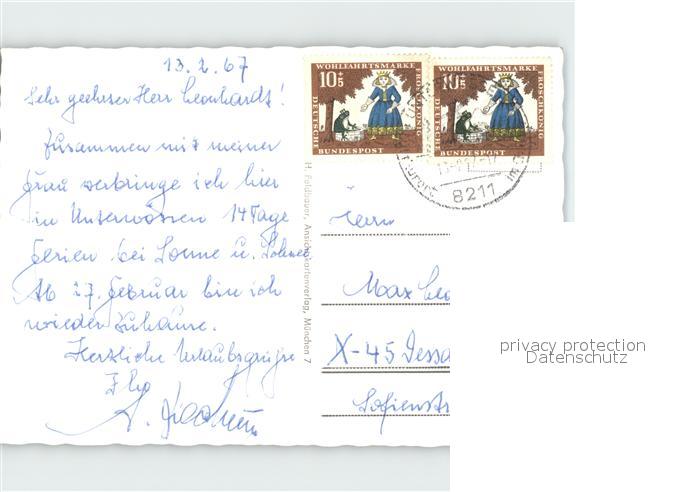 13.2.67
Sehr geehrter Herr Leonhardt!
Zusammen mit meiner
Frau verbringe ich hier
in Unterwössen 14 Tage
Ferien bei Sonne u. Schnee.
Ab 27. Februar bin ich
wieder zuhause.
Herzliche Urlaubsgrüße
Ihr
H. Feldhauer, Ansichtskartenverlag, München 7
10+5
WOHLFAHRTSMARKE
FROSCHKÖNIG
DEUTSCHE
BUNDESPOST
10+5
WOHLFAHRTSMARKE
FROSCHKÖNIG
DEUTSCHE
BUNDESPOST
8211
Herrn
Max Leo
X-45 Dessa
Sofienstr
privacy protection
Datenschutz